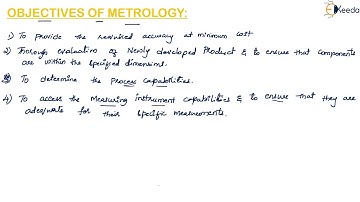 OBJECTIVES OF METROLOGY:
Ekeeda
1) To provide the required accuracy at minimum cost
2) Thorough evaluation of Newly developed Product & to ensure that components
are within the specified dimensions.
3) To determine the Process Capabilities.
4) To access the Measuring instrument capabilities & to ensure that they are
adequate for their specific measurements.